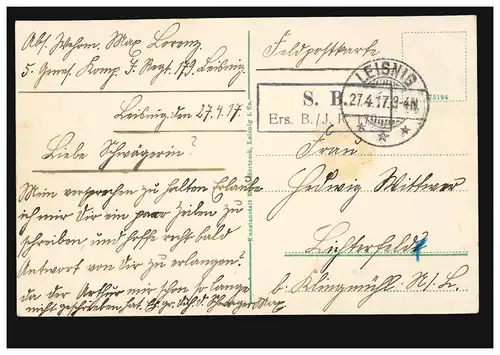 Abs. Wehrm. Max Lorenz
5. Genes. Komp. J. Regt. 179. Leisnig.
Leisnig, den 27.4.17
Liebe Schwägerin!
Mein versprechen zu halten Erlaube
ich mir Dir ein paar Zeilen zu
schreiben und hoffe recht bald
Antwort von Dir zu erlangen.
da der Artur mir schon so lange
nicht geschrieben hat. Es gr. Dich d. Schwager Max.
Feldpostkarte
LEISNIG
27.4.17. 3-4N
S. B.
Ers. B./J. R.
Frau
Hedwig Mittwer
Lichterfeld
b. Klingmühl. N/L.
Kunstanstalt Leisnig i. Sa.